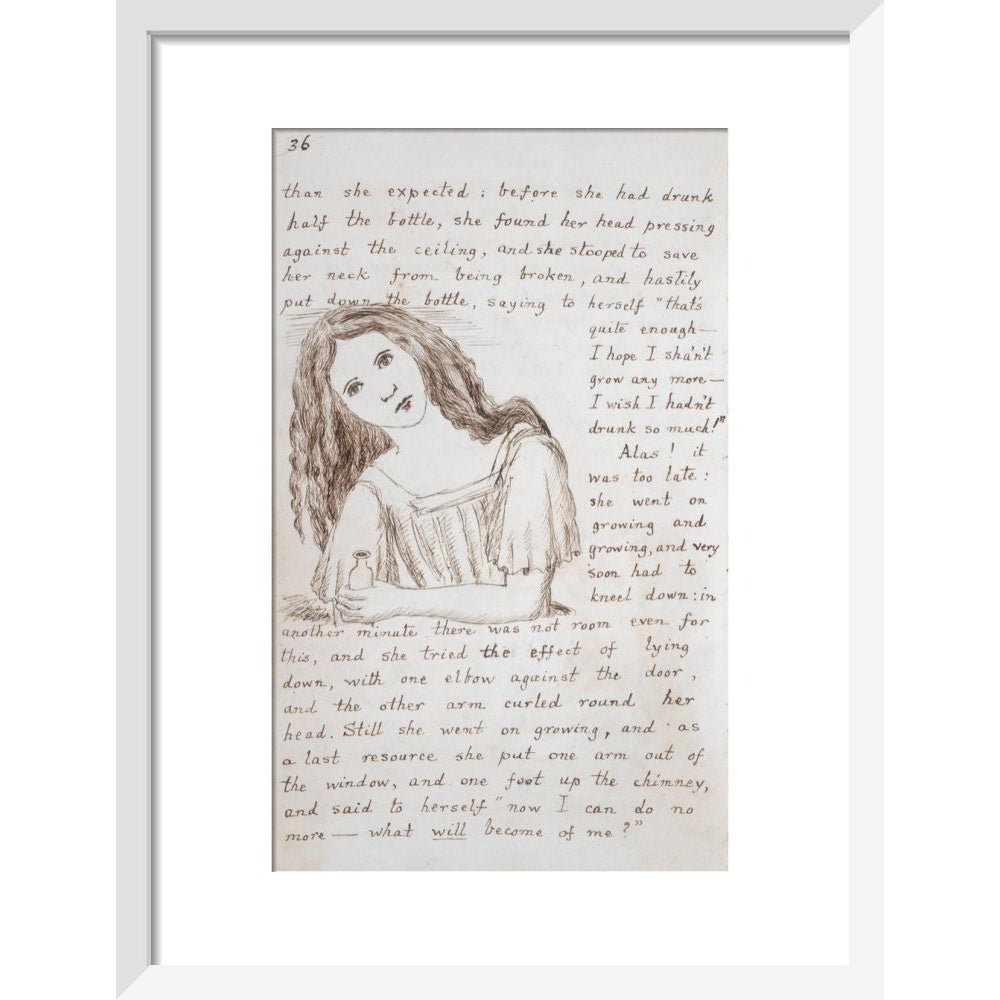 36
than she expected : before she had drunk
half the bottle, she found her head pressing
against the ceiling, and she stooped to save
her neck from being broken, and hastily
put down the bottle, saying to herself "that's
quite enough —
I hope I sha'n't
grow any more —
I wish I hadn't
drunk so much!"
Alas! it
was too late :
she went on
growing and
growing, and very
soon had to
kneel down : in
another minute there was not room even for
this, and she tried the effect of lying
down, with one elbow against the door,
and the other arm curled round her
head. Still she went on growing, and as
a last resource she put one arm out of
the window, and one foot up the chimney,
and said to herself "now I can do no
more — what will become of me?"